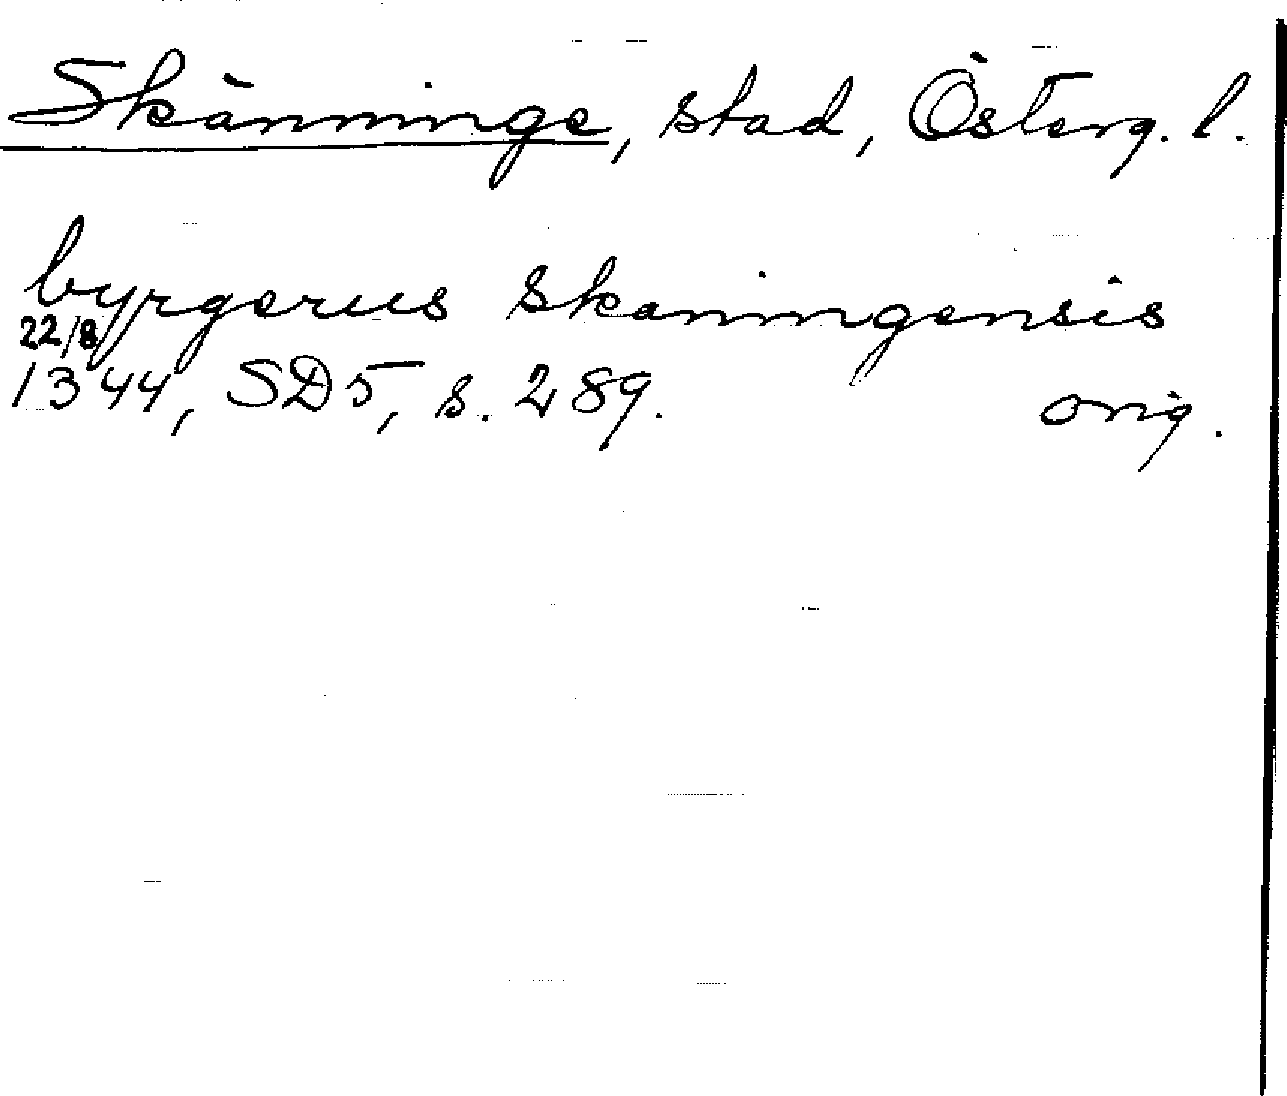 Skänninge, stad, Österg. l.
byrgerus skeningensis
22/8
1344, SD5, s. 289. orig.